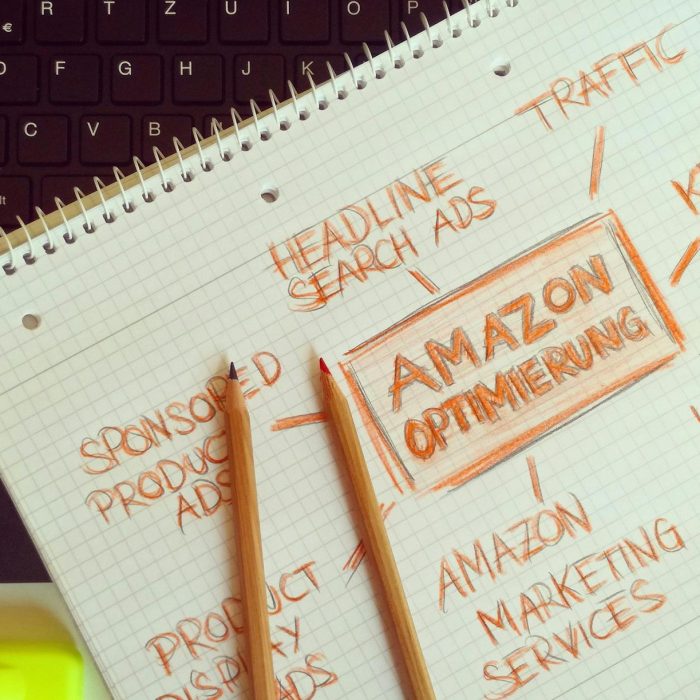 R T Z U I O P
€
D F G H J K
C V B
TRAFFIC
HEADLINE
SEARCH ADS
AMAZON
OPTIMIERUNG
SPONSORED
PRODUCT
ADS
AMAZON
MARKETING
SERVICES
PRODUCT
DISPLAY
ADS